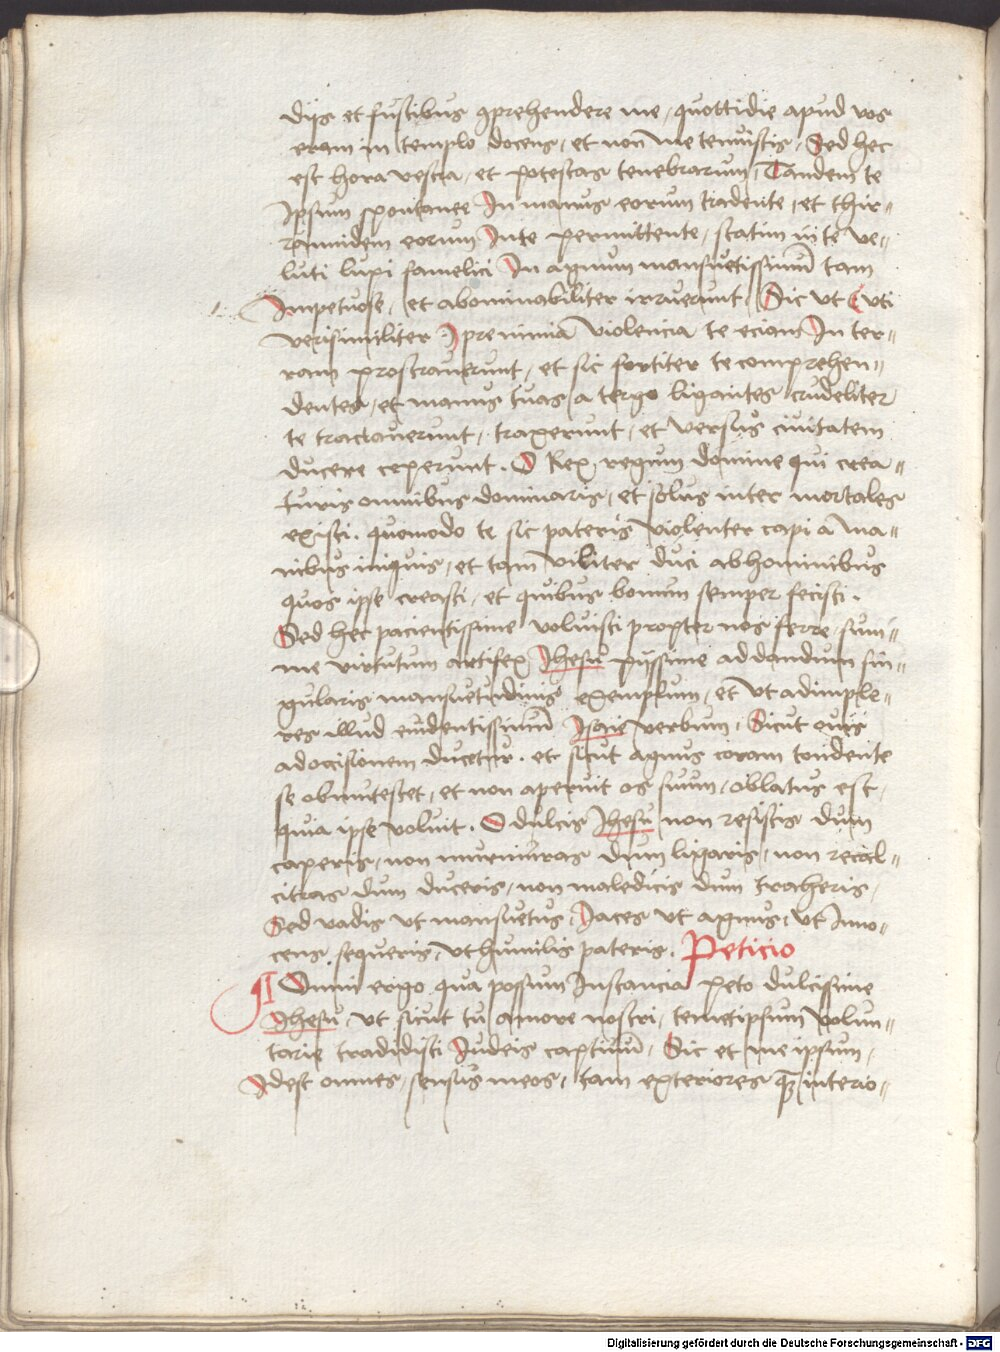 dijs et fustibus ꝯprehendere me, quottidie apud vos
eram in templo docens, et non me tenuistis, Sed hec
est hora vestra, et potestas tenebrarum, Tandem te
ipsum spontanee In manus eorum tradente, et thir„
rannidem eorum Inte permittente, statim in te ve„
luti lupi famelici In agnum mansuetissimū tam
Impetuose, et abominabiliter irruerunt, Sic ut
verisimiliter pre nimia violencia te eciam In ter„
ram prostrauerunt, et sic fortiter te comprehen„
dentes, et manus tuas a tergo ligantes crudeliter
te tractauerunt, traxerunt, et versus ciuitatem
ducere ceperunt. O Rex regum domine qui crea„
turis omnibus dominaris, et solus inter mortales
existi. quomodo te sic pateris violenter capi a ma„
nibus iniquis, et tam viliter duci ab hominibus
quos ipse creasti, et quibus bonum semper fecisti.
Sed hec pacientissime voluisti propter nos ferre, sum„
me virtutum artifex Jhesu pijssime ad dandum sin„
gularis mansuetudinis exemplum, et ut adimple„
res illud euidentissimū Isaie verbum, Sicut ouis
ad occisionem ducetur. et sicut agnus coram tondente
se obmutescet, et non aperuit os suum, oblatus est,
quia ipse voluit. O dulcis Jhesu non resistis dum
caperis, non murmuras dum ligaris, non recal„
citras dum duceris, non maledicis dum traheris,
Sed vadis ut mansuetus, Iaces ut agnus, ut Inno„
cens sequeris, ut humilis pateris. Peticio
¶ Omni ergo qua possum Instancia peto dulcissime
Jhesu, ut sicut tu amore nostri, temetipsum volun„
tarie tradidisti Iudeis captiuū, Sic et me ipsum,
Idest omnes, sensus meos, tam exteriores qꝫ interio„
Digitalisierung gefördert durch die Deutsche Forschungsgemeinschaft - DFG